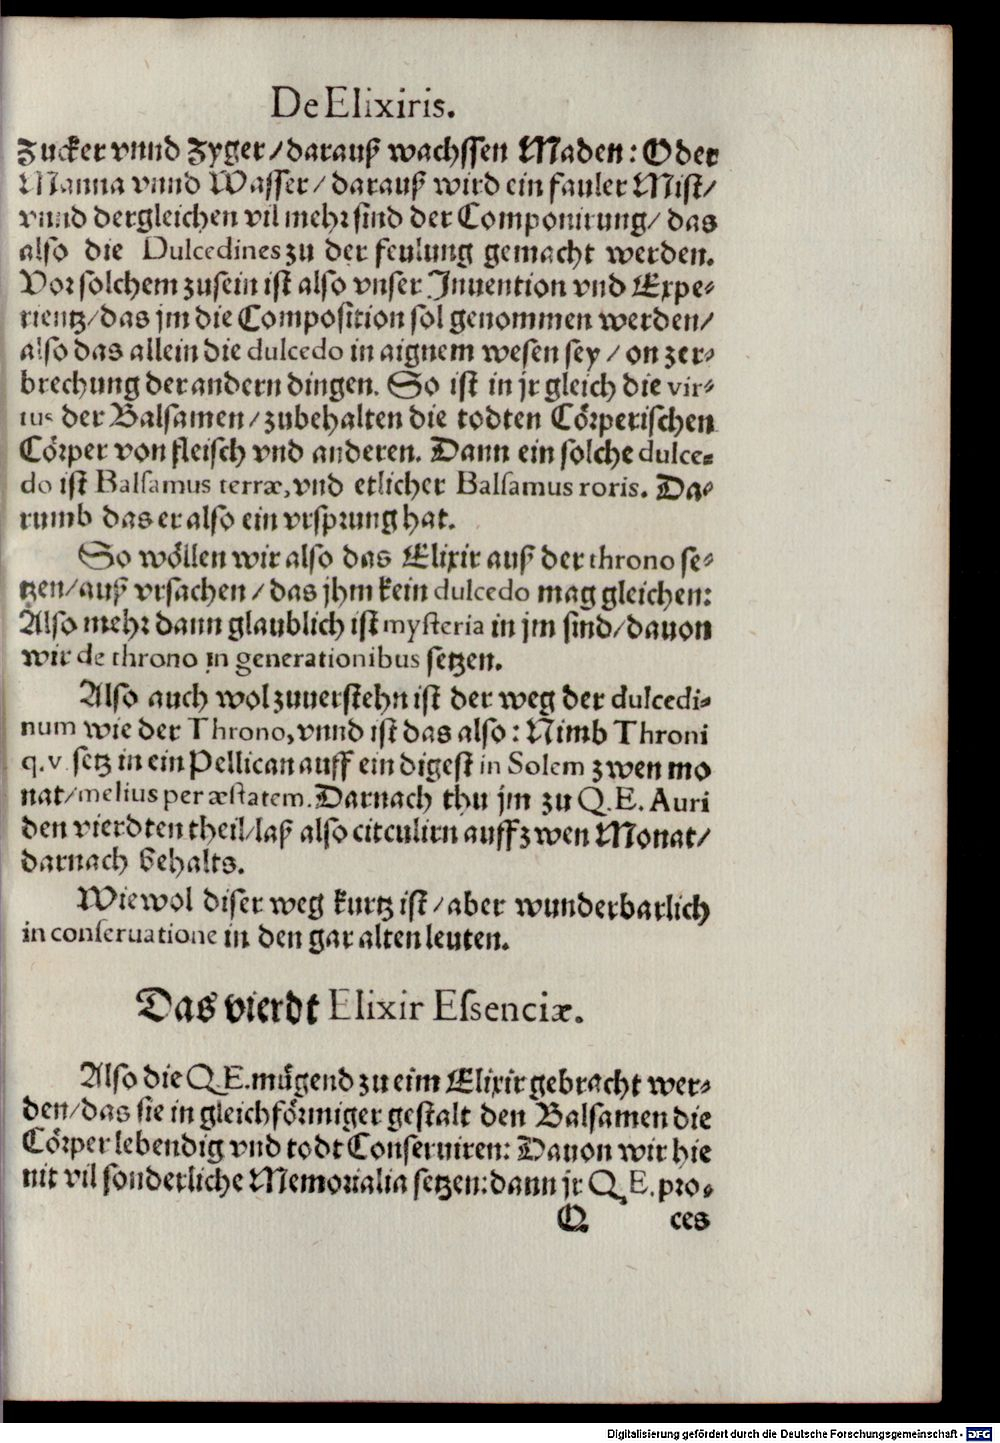 De Elixiris.
Zucker vnnd Zyger/darauß wachssen Maden: Oder
Manna vnnd Wasser/darauß wird ein fauler Mist/
vnnd dergleichen vil mehr sind der Componirung/das
also die Dulcedines zu der feulung gemacht werden.
Vor solchem zusein ist also vnser Inuention vnd Expe-
rientz/das jm die Composition sol genommen werden/
also das allein die dulcedo in aignem wesen sey/on zer-
brechung der andern dingen. So ist in jr gleich die vir-
tus der Balsamen/zubehalten die todten Cörperischen
Cörper von fleisch vnd anderen. Dann ein solche dulce-
do ist Balsamus terræ, vnd etlicher Balsamus roris. Da-
rumb das er also ein vrsprung hat.
So wöllen wir also das Elixir auß der throno se-
tzen/auß vrsachen/das jhm kein dulcedo mag gleichen:
Also mehr dann glaublich ist mysteria in jm sind/dauon
wir de throno in generationibus setzen.
Also auch wol zuuerstehn ist der weg der dulcedi-
num wie der Throno, vnnd ist das also: Nimb Throni
q.v. setz in ein Pellican auff ein digest in Solem zwen mo
nat/melius per æstatem. Darnach thu jm zu Q.E. Auri
den vierdten theil/laß also citculirn auff zwen Monat/
darnach behalts.
Wiewol diser weg kurtz ist/aber wunderbarlich
in conseruatione in den gar alten leuten.
Das vierdt Elixir Essenciæ.
Also die Q.E. mügend zu eim Elixir gebracht wer-
den/das sie in gleichförmiger gestalt den Balsamen die
Cörper lebendig vnd todt Conseruiren: Dauon wir hie
nit vil sonderliche Memorialia setzen: dann jr Q.E. pro-
Q ces
Digitalisierung gefördert durch die Deutsche Forschungsgemeinschaft - DFG